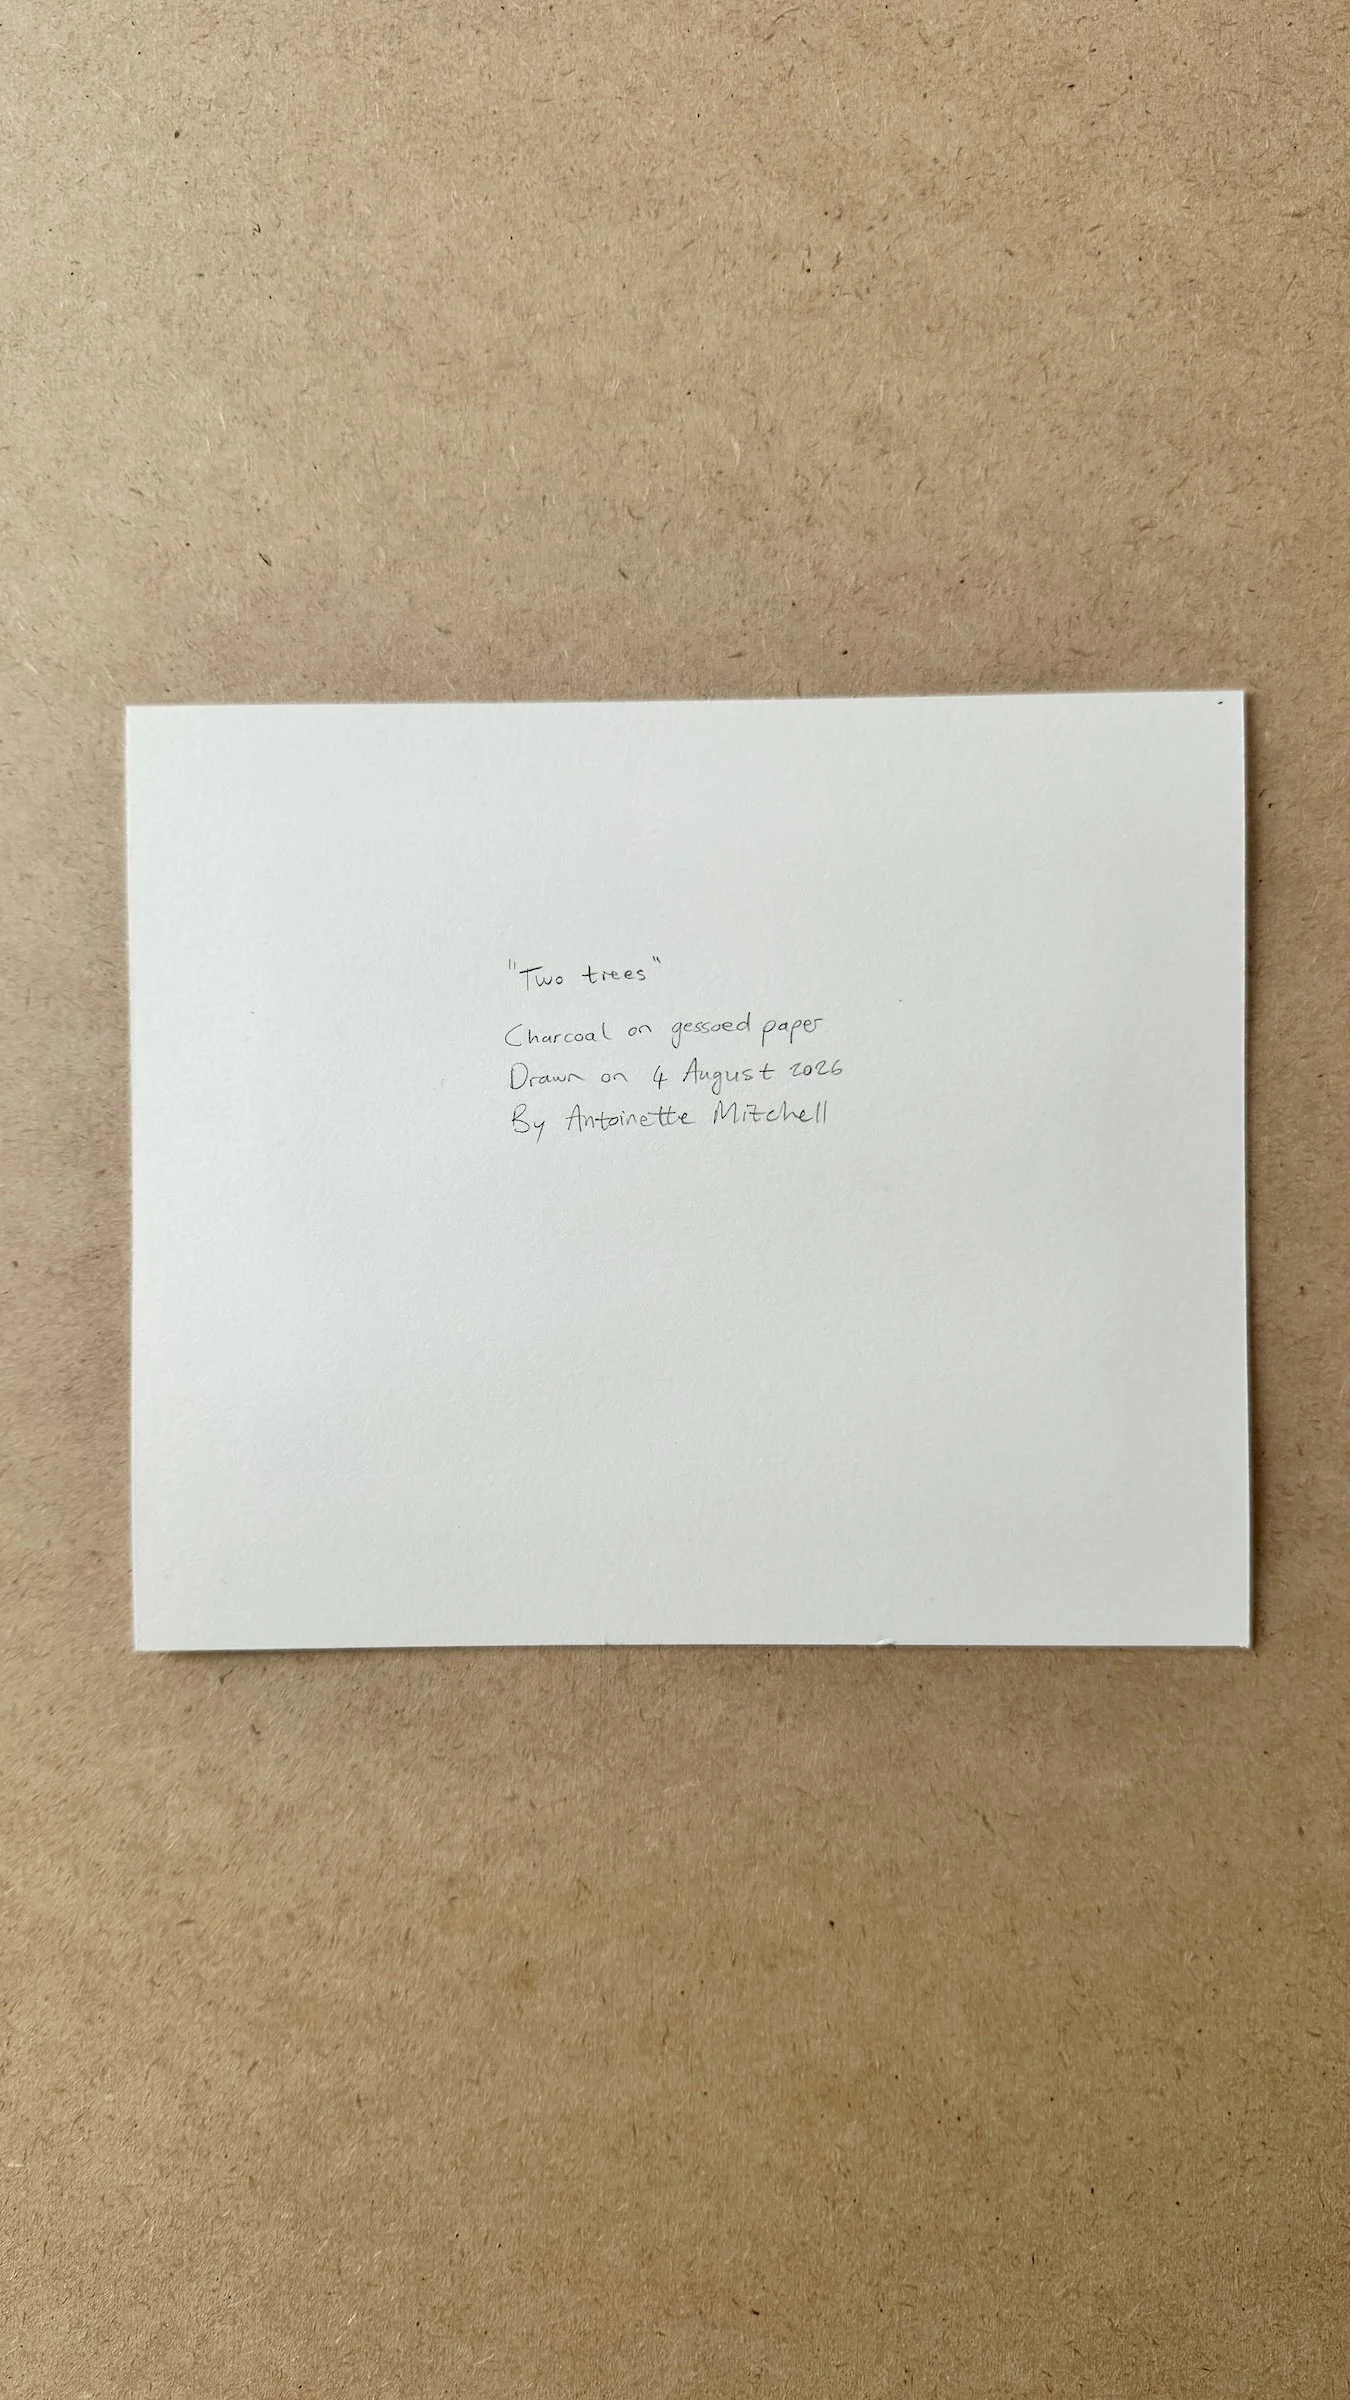 "Two trees"
Charcoal on gessoed paper
Drawn on 4 August 2026
By Antoinette Mitchell